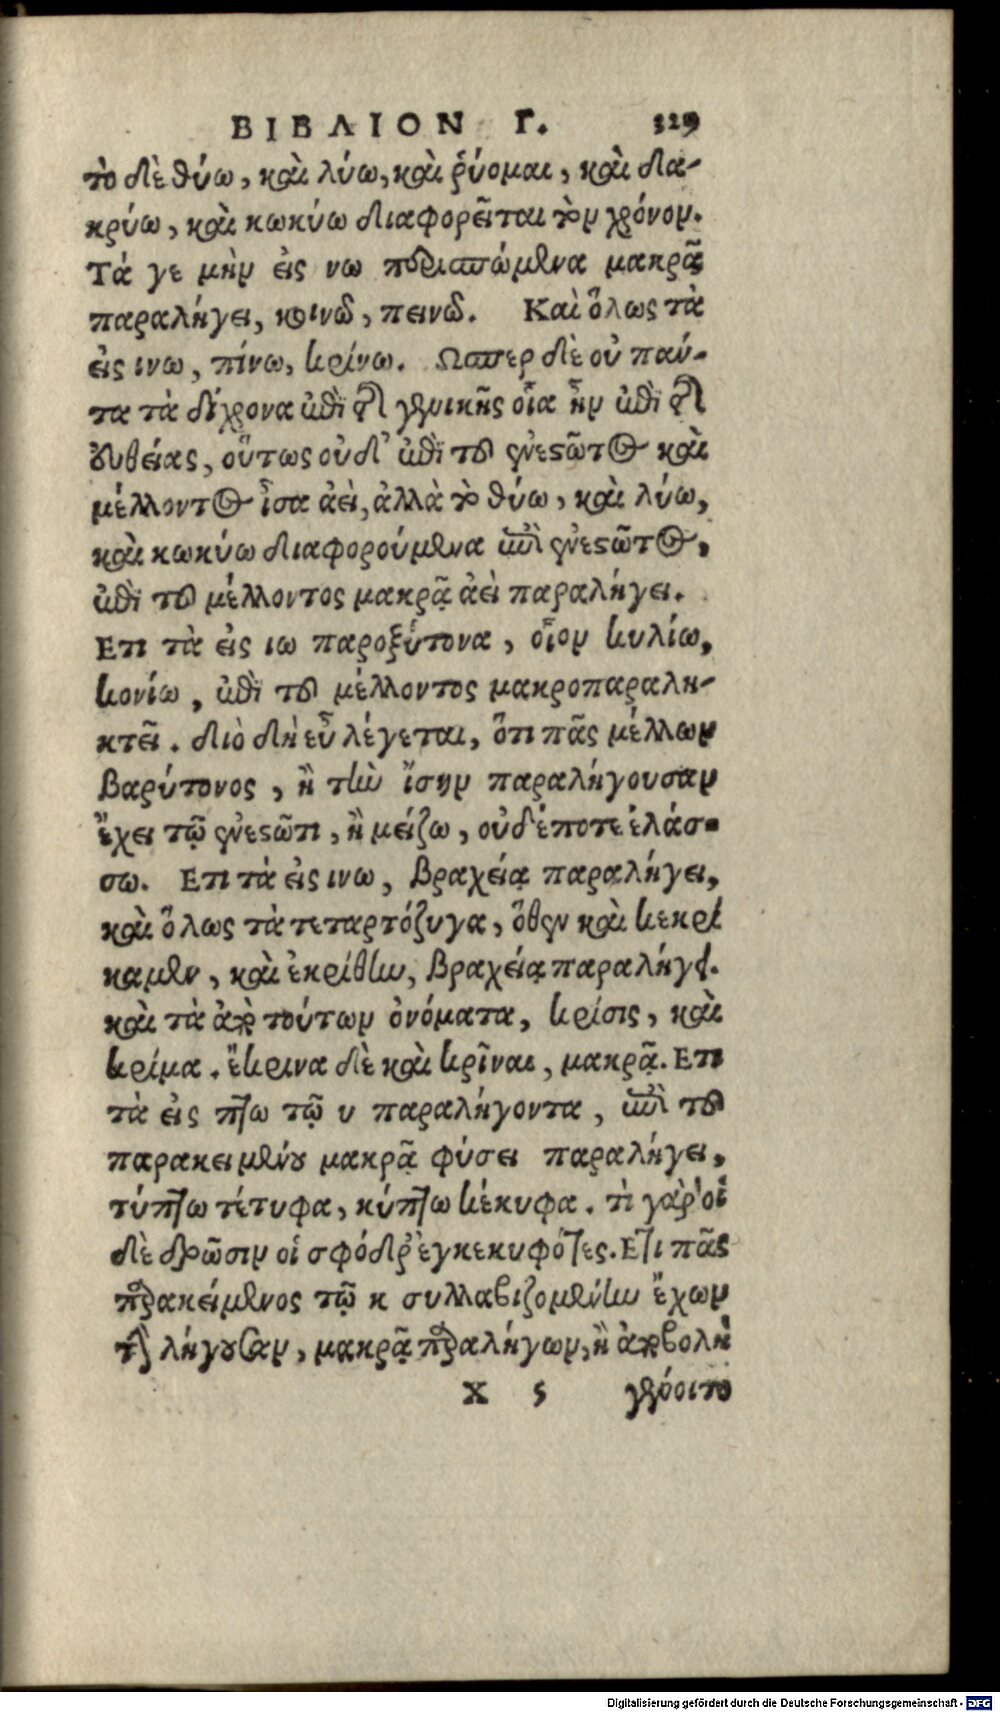 ΒΙΒΛΙΟΝ Γ. 329
τὸ δὲ θύω, καὶ λύω, καὶ ῥύομαι, καὶ δα-
κρύω, καὶ κωκύω διαφορεῖται τὸν χρόνον.
Τά γε μὴν εἰς νω περισπώμενα μακρᾷ
παραλήγει, κοινῶ, πεινῶ. Καὶ ὅλως τὰ
εἰς ινω, πίνω, κρίνω. Ωσπερ δὲ οὐ πάν-
τα τὰ δίχρονα ἐπὶ τῆς γενικῆς οἷα ἦν ἐπὶ τῆς
εὐθείας, οὕτως οὐδ' ἐπὶ τοῦ ἐνεστῶτος καὶ
μέλλοντος ἶσα ἀεὶ, ἀλλὰ τὸ θύω, καὶ λύω,
καὶ κωκύω διαφορούμενα ἐπὶ ἐνεστῶτος,
ἐπὶ τοῦ μέλλοντος μακρᾷ ἀεὶ παραλήγει.
Ετι τὰ εἰς ιω παροξύτονα, οἷον κυλίω,
κονίω, ἐπὶ τοῦ μέλλοντος μακροπαραλη-
κτεῖ. διὸ δὴ εὖ λέγεται, ὅτι πᾶς μέλλων
βαρύτονος, ἢ τὴν ἴσην παραλήγουσαν
ἔχει τῷ ἐνεστῶτι, ἢ μείζω, οὐδέποτε ἐλάσ-
σω. Ετι τὰ εἰς ινω, βραχείᾳ παραλήγει,
καὶ ὅλως τὰ τεταρτόζυγα, ὅθεν καὶ κεκρί
καμεν, καὶ ἐκρίθην, βραχείᾳ παραλήγει.
καὶ τὰ ἀπὸ τούτων ὀνόματα, κρίσις, καὶ
κρίμα. ἔκρινα δὲ καὶ κρῖναι, μακρᾷ. Ετι
τὰ εἰς πτω τῷ υ παραλήγοντα, ἐπὶ τοῦ
παρακειμένου μακρᾷ φύσει παραλήγει,
τύπτω τέτυφα, κύπτω κέκυφα. τὶ γὰρ οἱ
δὲ δρῶσιν οἱ σφόδρ' ἐγκεκυφότες. Ετι πᾶς
παρακείμενος τῷ κ συλλαβιζομένην ἔχων
τὴν λήγουσαν, μακρᾷ παραλήγων, ἢ ἀποβολὴ
X 5 γένοιτο
Digitalisierung gefördert durch die Deutsche Forschungsgemeinschaft - DFG